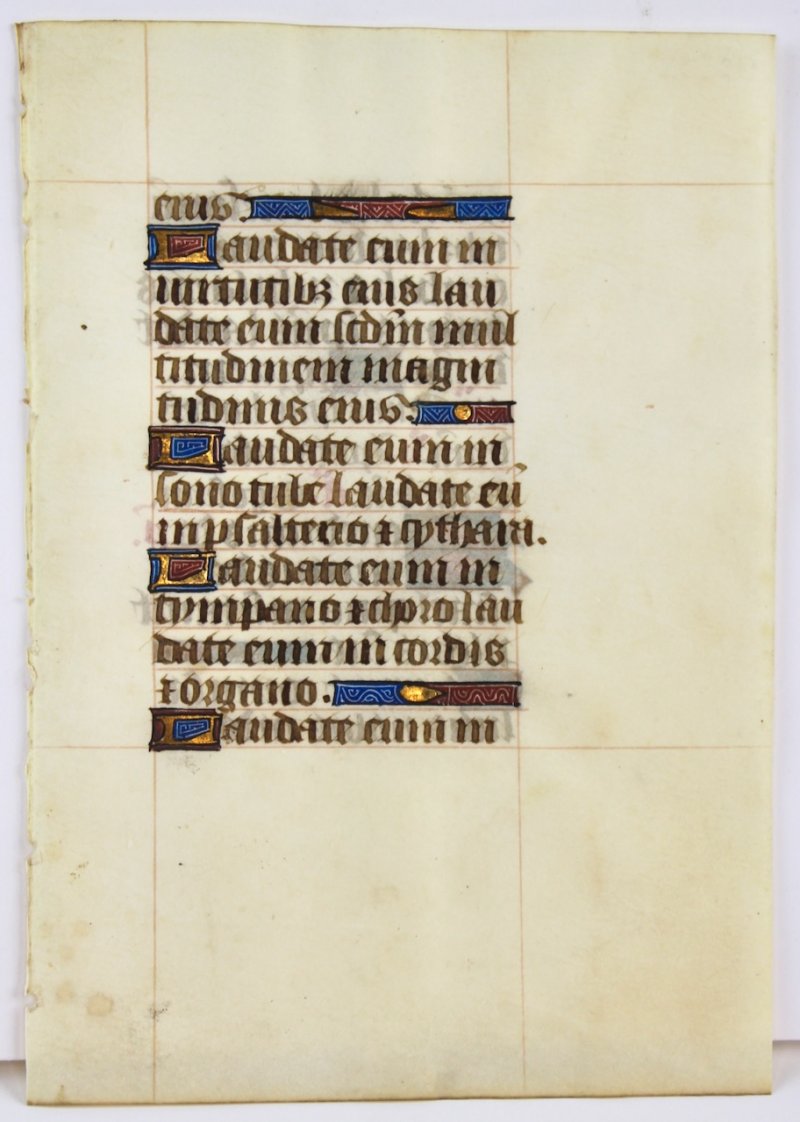 eius.
Laudate eum in
virtutibꝫ eius lau
date eum scdm̄ mul
titudinem magni
tudinis eius.
Laudate eum in
sono tube laudate eū
in psalterio ⁊ cythara.
Laudate eum in
tympano ⁊ choro lau
date eum in cordis
⁊ organo.
Laudate eum in